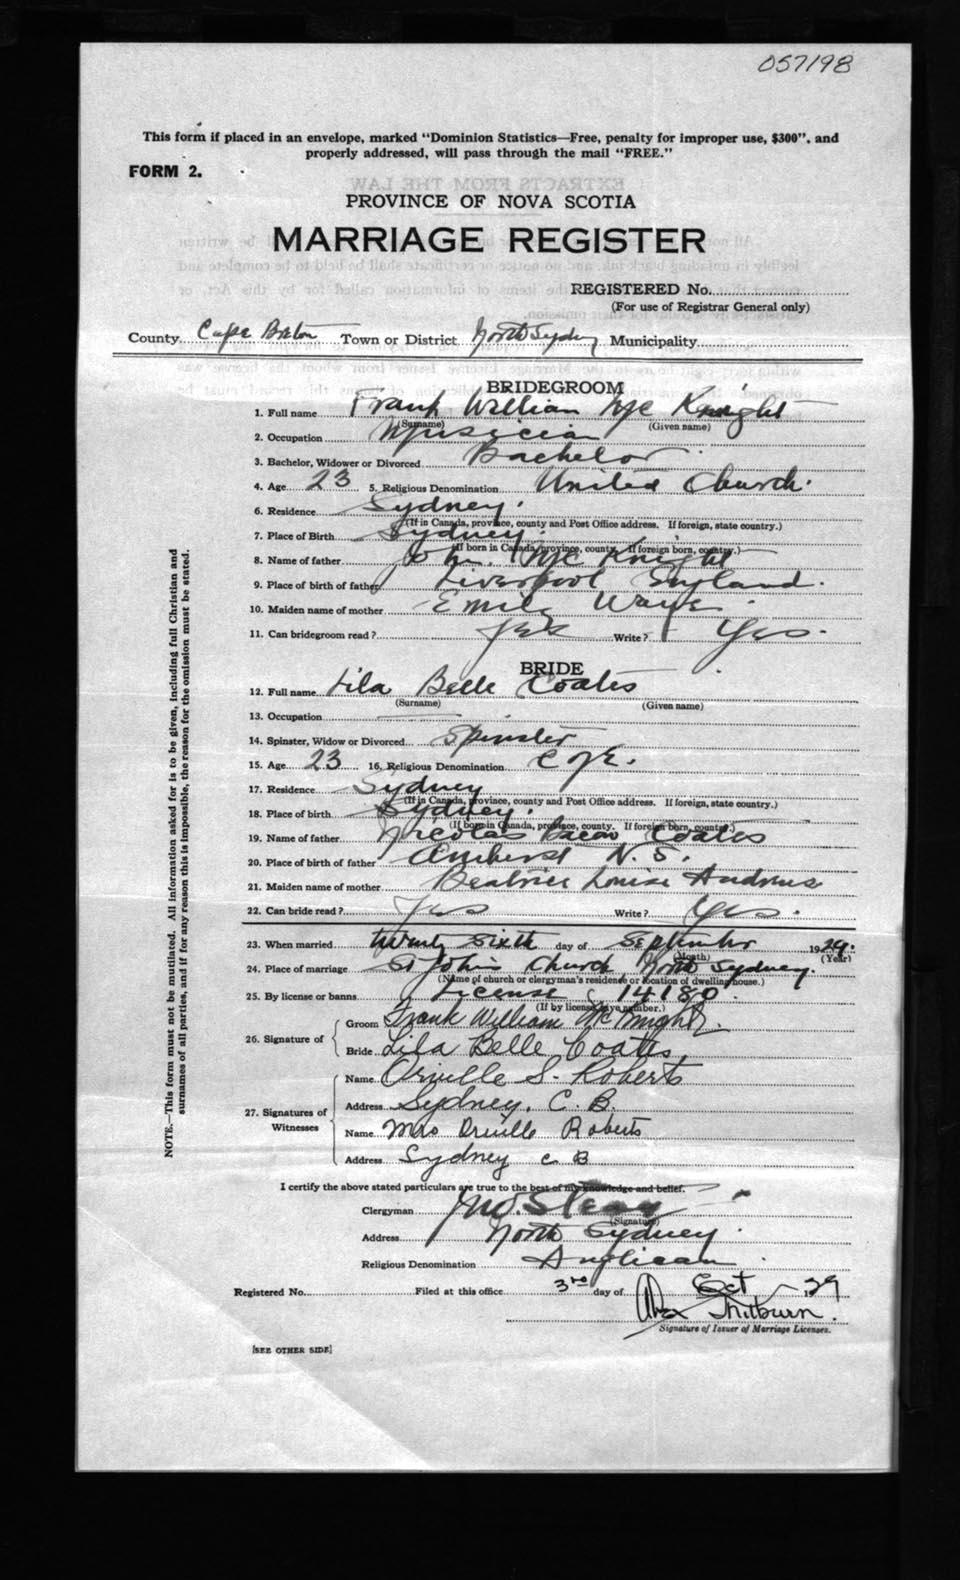 057198
This form if placed in an envelope, marked "Dominion Statistics—Free, penalty for improper use, $300", and
properly addressed, will pass through the mail "FREE."
FORM 2.
PROVINCE OF NOVA SCOTIA
MARRIAGE REGISTER
REGISTERED No.
(For use of Registrar General only)
County Cape Breton Town or District North Sydney Municipality
BRIDEGROOM
1. Full name Frank William McKnight
(Surname) (Given name)
2. Occupation Musician
3. Bachelor, Widower or Divorced Bachelor
4. Age 23 5. Religious Denomination United Church.
6. Residence Sydney.
(If in Canada, province, county and Post Office address. If foreign, state country.)
7. Place of Birth Sydney.
(If born in Canada, province, county. If foreign born, country.)
8. Name of father McKnight
9. Place of birth of father Liverpool England.
10. Maiden name of mother Emily
11. Can bridegroom read? Yes Write? Yes.
BRIDE
12. Full name Lila Belle Coates
(Surname) (Given name)
13. Occupation
14. Spinster, Widow or Divorced Spinster
15. Age 23 16. Religious Denomination C of E.
17. Residence Sydney
(If in Canada, province, county and Post Office address. If foreign, state country.)
18. Place of birth Sydney.
(If born in Canada, province, county. If foreign born, country.)
19. Name of father Nicolas Bacon Coates
20. Place of birth of father Amherst N. S.
21. Maiden name of mother Beatrice Louise Andrews
22. Can bride read? Yes Write? Yes.
23. When married twenty sixth day of September 1929.
(Month) (Year)
24. Place of marriage St John's Church North Sydney.
(Name of church or clergyman's residence or location of dwelling house.)
25. By license or banns License 14180
(If by license give number.)
26. Signature of
Groom Frank William McKnight.
Bride Lila Belle Coates
27. Signatures of Witnesses
Name Orville S. Roberts
Address Sydney, C. B.
Name Mrs Orville Roberts
Address Sydney C B
I certify the above stated particulars are true to the best of my knowledge and belief.
Clergyman
(Signature)
Address North Sydney
Religious Denomination Anglican
Registered No. Filed at this office 3rd day of Oct 1929
Signature of Issuer of Marriage Licenses.
[SEE OTHER SIDE]
NOTE.—This form must not be mutilated. All information asked for is to be given, including full Christian and
surnames of all parties, and if for any reason this is impossible, the reason for the omission must be stated.